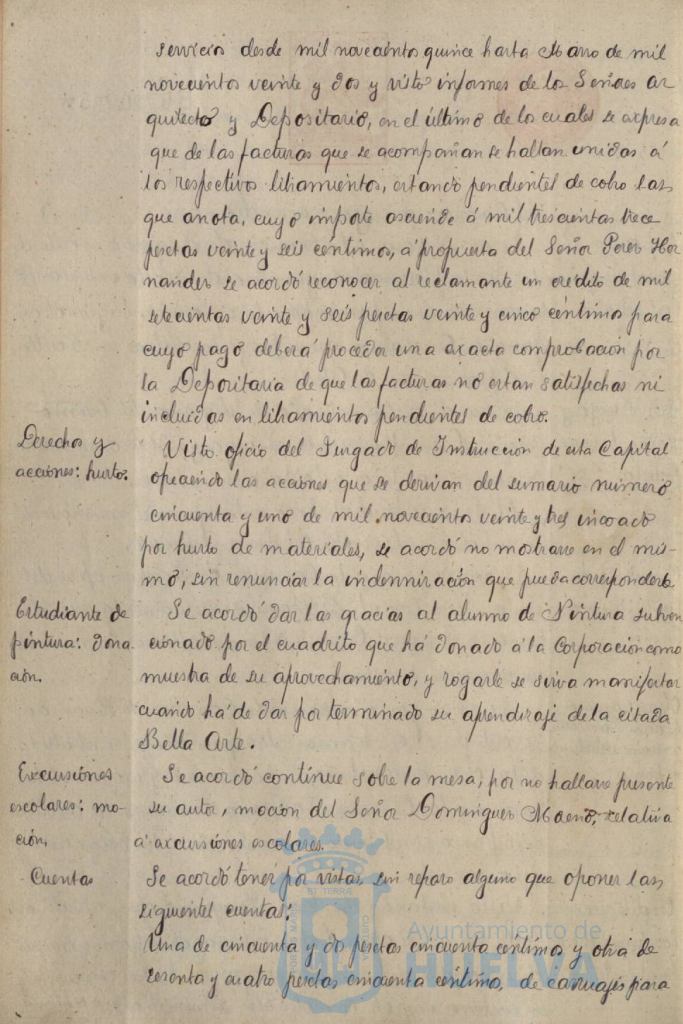 servicio desde mil novecientos quince hasta Marzo de mil
novecientos veinte y dos y visto informes de los Señores ar
quitecto y Depositario, en el último de los cuales se expresa
que de las facturas que se acompañan se hallan unidas á
los respectivos libramientos, estando pendientes de cobro las
que anota, cuyo importe asciende á mil trescientas trece
pesetas veinte y seis céntimos, á propuesta del Señor Perez Her
nandez se acordó reconocer al reclamante un crédito de mil
setecientas veinte y seis pesetas veinte y cinco céntimos para
cuyo pago deberá proceder una exacta comprobación por
la Depositaria de que las facturas no estan satisfechas ni
incluidas en libramientos pendientes de cobro.
Derechos y
acciones: hurto.
Visto oficio del Juzgado de Instrucción de esta Capital
ofreciendo las acciones que se derivan del sumario número
cincuenta y uno de mil novecientos veinte y tres incoado
por hurto de materiales, se acordó no mostrarse en el mis-
mo, sin renunciar la indemnización que pueda corresponderle
Estudiante de
pintura: dona-
ción.
Se acordó dar las gracias al alumno de Pintura subven
cionado por el cuadrito que há donado á la Corporación como
muestra de su aprovechamiento, y rogarle se sirva manifestar
cuando há de dar por terminado su aprendizaje de la citada
Bella Arte.
Excursiones
escolares: mo-
ción.
Se acordó continúe sobre la mesa, por no hallarse presente
su autor, moción del Señor Dominguez relativa
á excursiones escolares.
Cuentas
Se acordó tener por vistas, sin reparo alguno que oponer las
siguientes cuentas:
Una de cincuenta y dos pesetas cincuenta céntimos y otra de
sesenta y cuatro pesetas cincuenta céntimos, de carruajes para
Ayuntamiento de
HUELVA